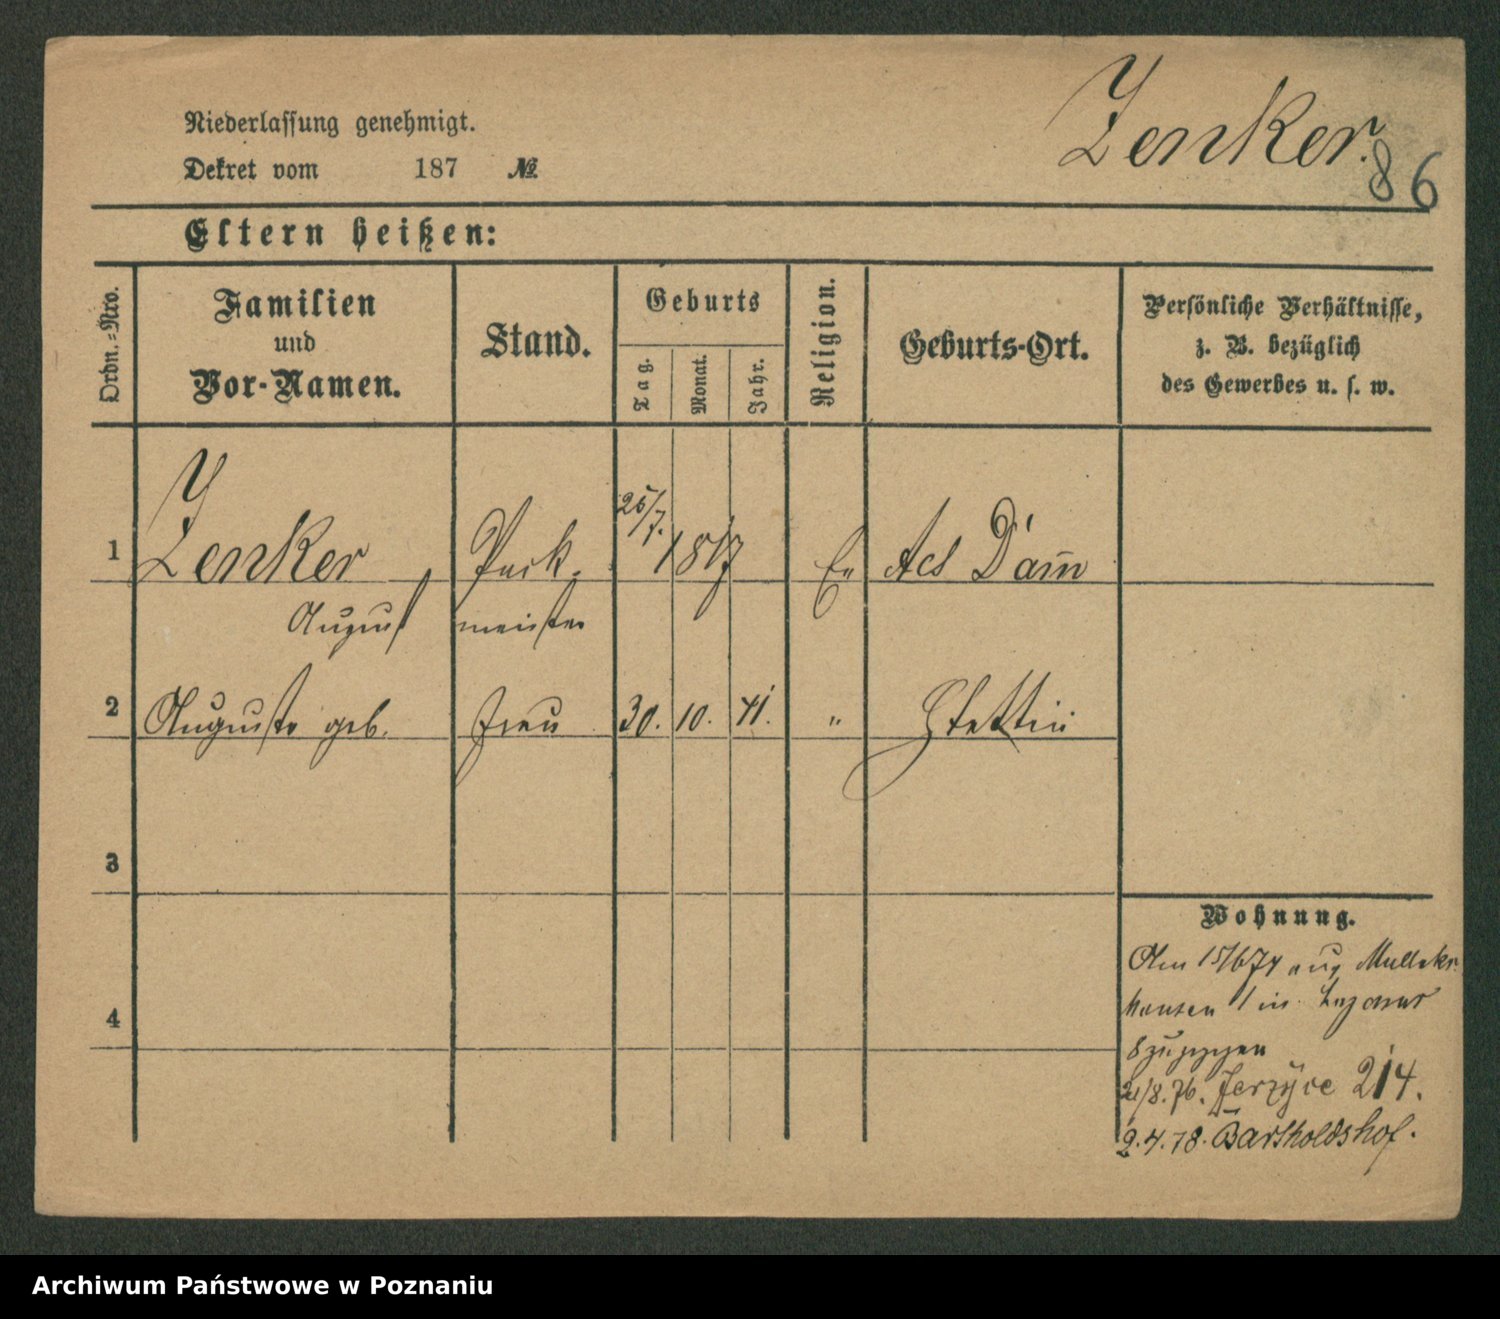 Zenker.
86
Niederlassung genehmigt.
Dekret vom 187 №
Eltern heißen:
Ordn.-Nro.
Familien
und
Vor-Namen.
Stand.
Geburts
Tag.
Monat.
Jahr.
Religion.
Geburts-Ort.
Persönliche Verhältnisse,
z. B. bezüglich
des Gewerbes u. s. w.
1 Zenker Pack- 25/7. 1817 Ev
August meister
2 Auguste geb. Frau 30. 10. 41. " Stettin
3
4
Wohnung.
Am 15/674 aus
hausen in
/8. 76. Jerzyce 214.
2.4.78. Bartholdshof.
Archiwum Państwowe w Poznaniu